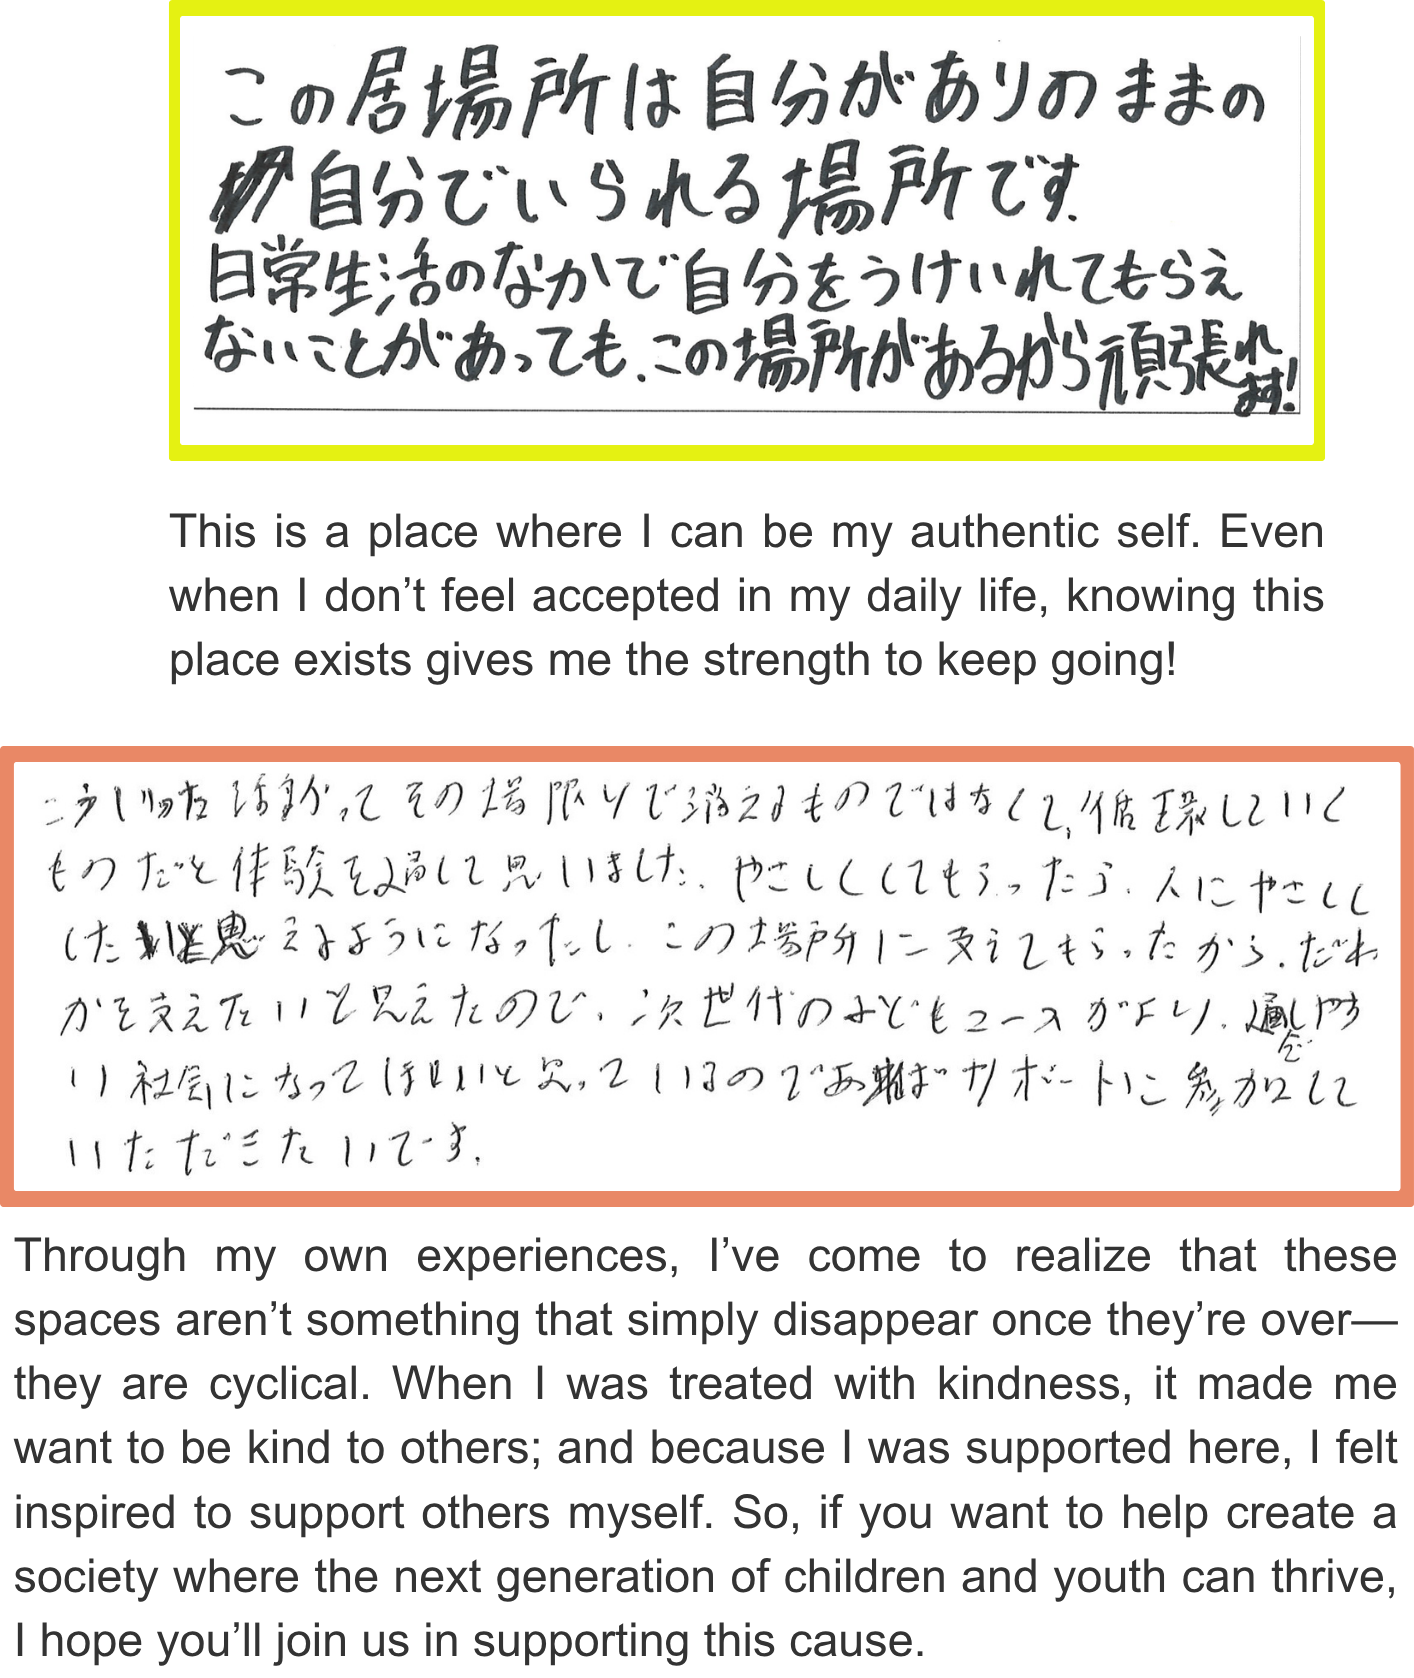 この居場所は自分がありのままの
自分でいられる場所です.
日常生活のなかで自分をうけいれてもらえ
ないことがあっても、この場所があるから頑張れ
ます!
This is a place where I can be my authentic self. Even
when I don’t feel accepted in my daily life, knowing this
place exists gives me the strength to keep going!
こういった活動ってその場限りで消えるものではなくて、循環していく
ものだと体験を通して思いました. やさしくしてもらったら、人にやさしく
したいと思えるようになったし、この場所に支えてもらったから、だれ
かを支えたいと思えたので、次世代の子どもユースがより、過ごしやす
い社会になってほしいと思っているのであれば サポートに参加して
いただきたいです.
Through my own experiences, I’ve come to realize that these
spaces aren’t something that simply disappear once they’re over—
they are cyclical. When I was treated with kindness, it made me
want to be kind to others; and because I was supported here, I felt
inspired to support others myself. So, if you want to help create a
society where the next generation of children and youth can thrive,
I hope you’ll join us in supporting this cause.